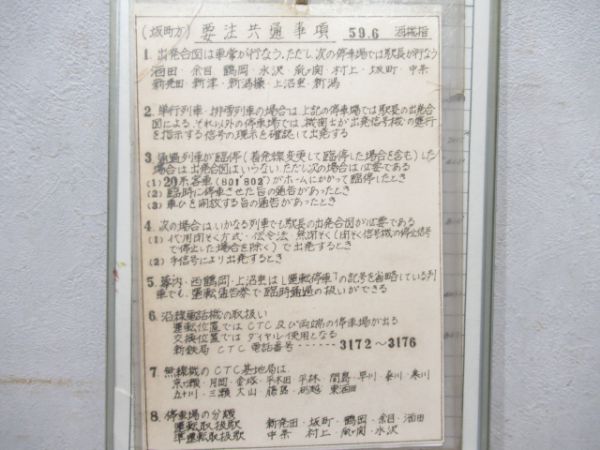 (坂町方) 要注共通事項 59.6 酒機指
1. 出発合図は車掌が行なう. ただし、次の停車場では駅長が行なう
酒田・余目・鶴岡・水沢・鼠ヶ関・村上・坂町・中条
新発田・新津・新潟操・上沼垂・新潟
2. 単行列車・排雪列車の場合は上記の停車場では駅長の出発合
図による. それ以外の停車場では、機関士が出発信号機の進行
を指示する信号の現示を確認して出発する
3. 通過列車が臨停(着発線変更して臨停した場合を含む)した
場合は出発合図はいらない. ただし次の場合は必要である
(1) 20系客車(801 802)がホームにかかって臨停したとき
(2) 臨時に停車させた旨の通告があったとき
(3) 車ひを開放する旨の通告があったとき
4. 次の場合はいかなる列車でも駅長の出発合図が必要である
(1) 代用閉そく方式・伝令法・無閉そく(閉そく信号機の停止信号
で停止した場合を除く)で出発するとき
(2) 手信号により出発するとき
5. 幕内・西鶴岡・上沼垂は「運転停車」の記号を省略している列
車でも、運転通告券で臨時通過の扱いができる
6. 沿線電話機の取扱い
運転位置ではCTC及び両端の停車場が出る
交換位置ではダイヤル使用となる
新鉄局 CTC 電話番号 ------ 3172〜3176
7. 無線機のCTC基地局は
京ヶ瀬・月岡・金塚・平木田・平林・間島・早川・桑川・寒川
五十川・三瀬・大山・藤島・砂越・東酒田
8. 停車場の分類
運転取扱駅 新発田・坂町・鶴岡・余目・酒田
準運転取扱駅 中条 村上・鼠ヶ関・水沢